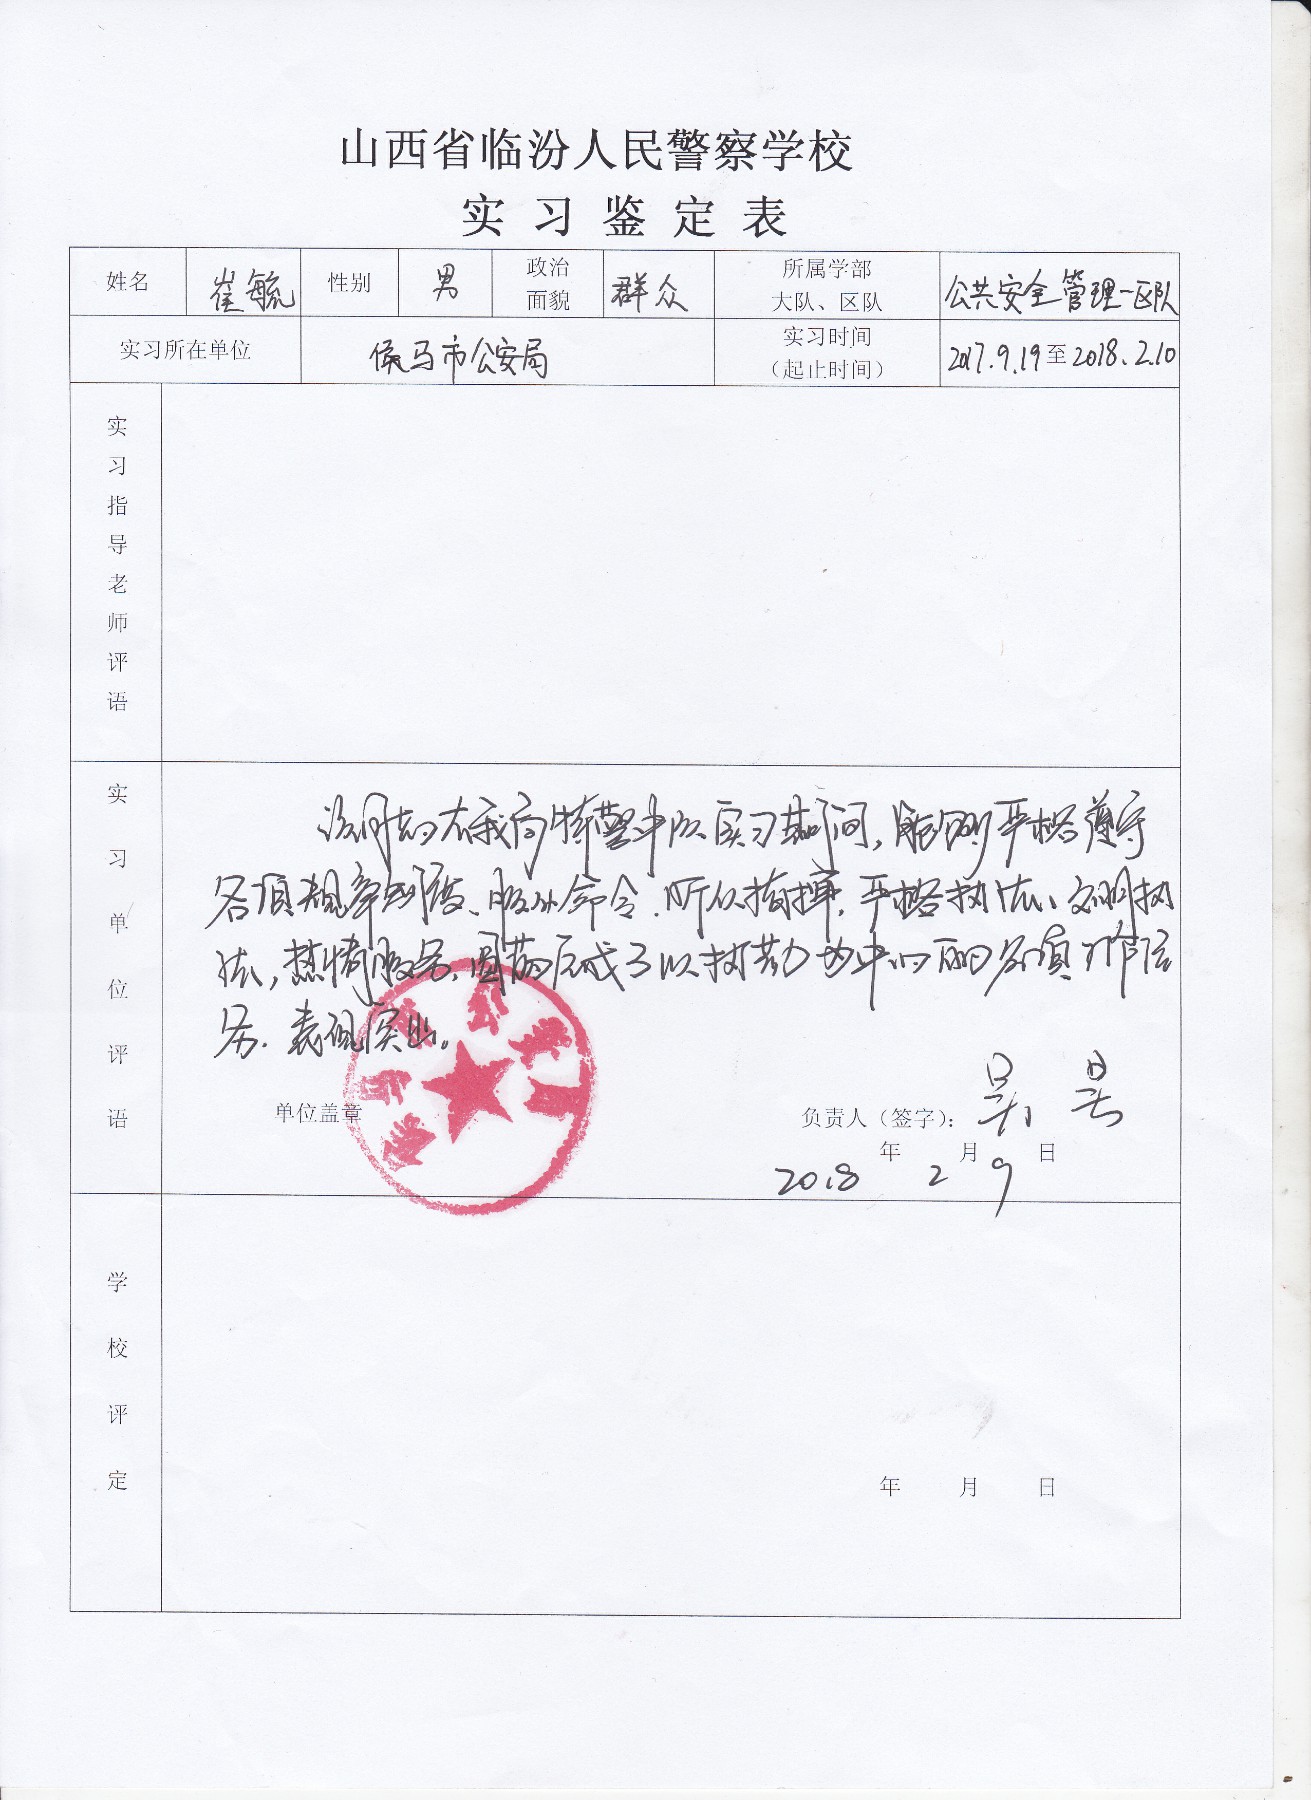 山西省临汾人民警察学校
实习鉴定表
姓名 崔毓 性别 男 政治面貌 群众 所属学部大队、区队 公共安全管理一区队
实习所在单位 侯马市公安局 实习时间（起止时间） 2017.9.19至2018.2.10
实习指导老师评语
实习单位评语
该同志在我局特警中队实习期间，能够严格遵守
各项规章制度、服从命令、听从指挥，严格执法、文明执
法，热情服务，圆满完成了以执勤为中心的各项工作任
务．表现突出。
单位盖章
负责人（签字）： 吴
年 月 日
2018 2 9
学校评定
年 月 日